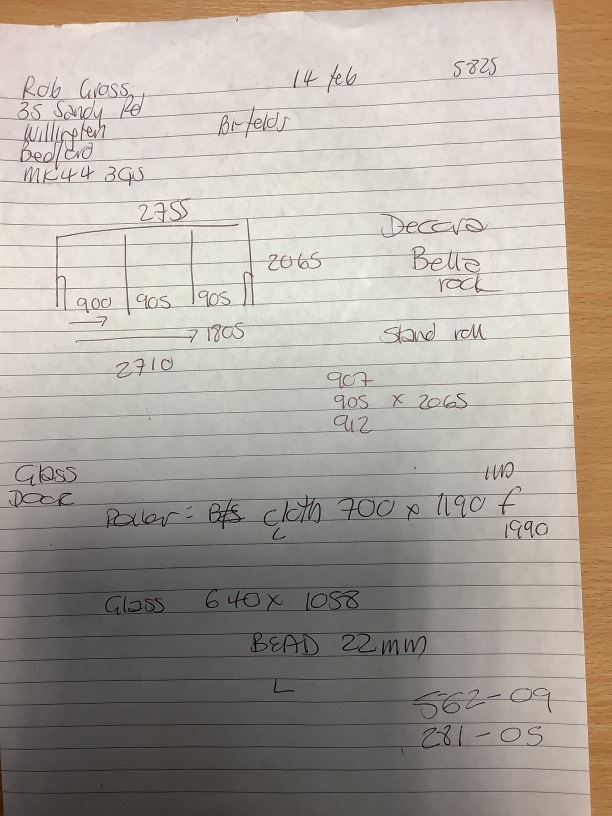 14 feb
5825
Rob Gross
35 Sandy Rd
Bedford
MK44 3QS
2755
2065
900 905 905
1805
2710
Decora
Bella
rock
Stand roll
907
905 x 2065
912
Glass
DOOR
Roller: cloth 700 x 1190 f
L
1990
Glass 640 x 1058
BEAD 22mm
L
562-09
281-05